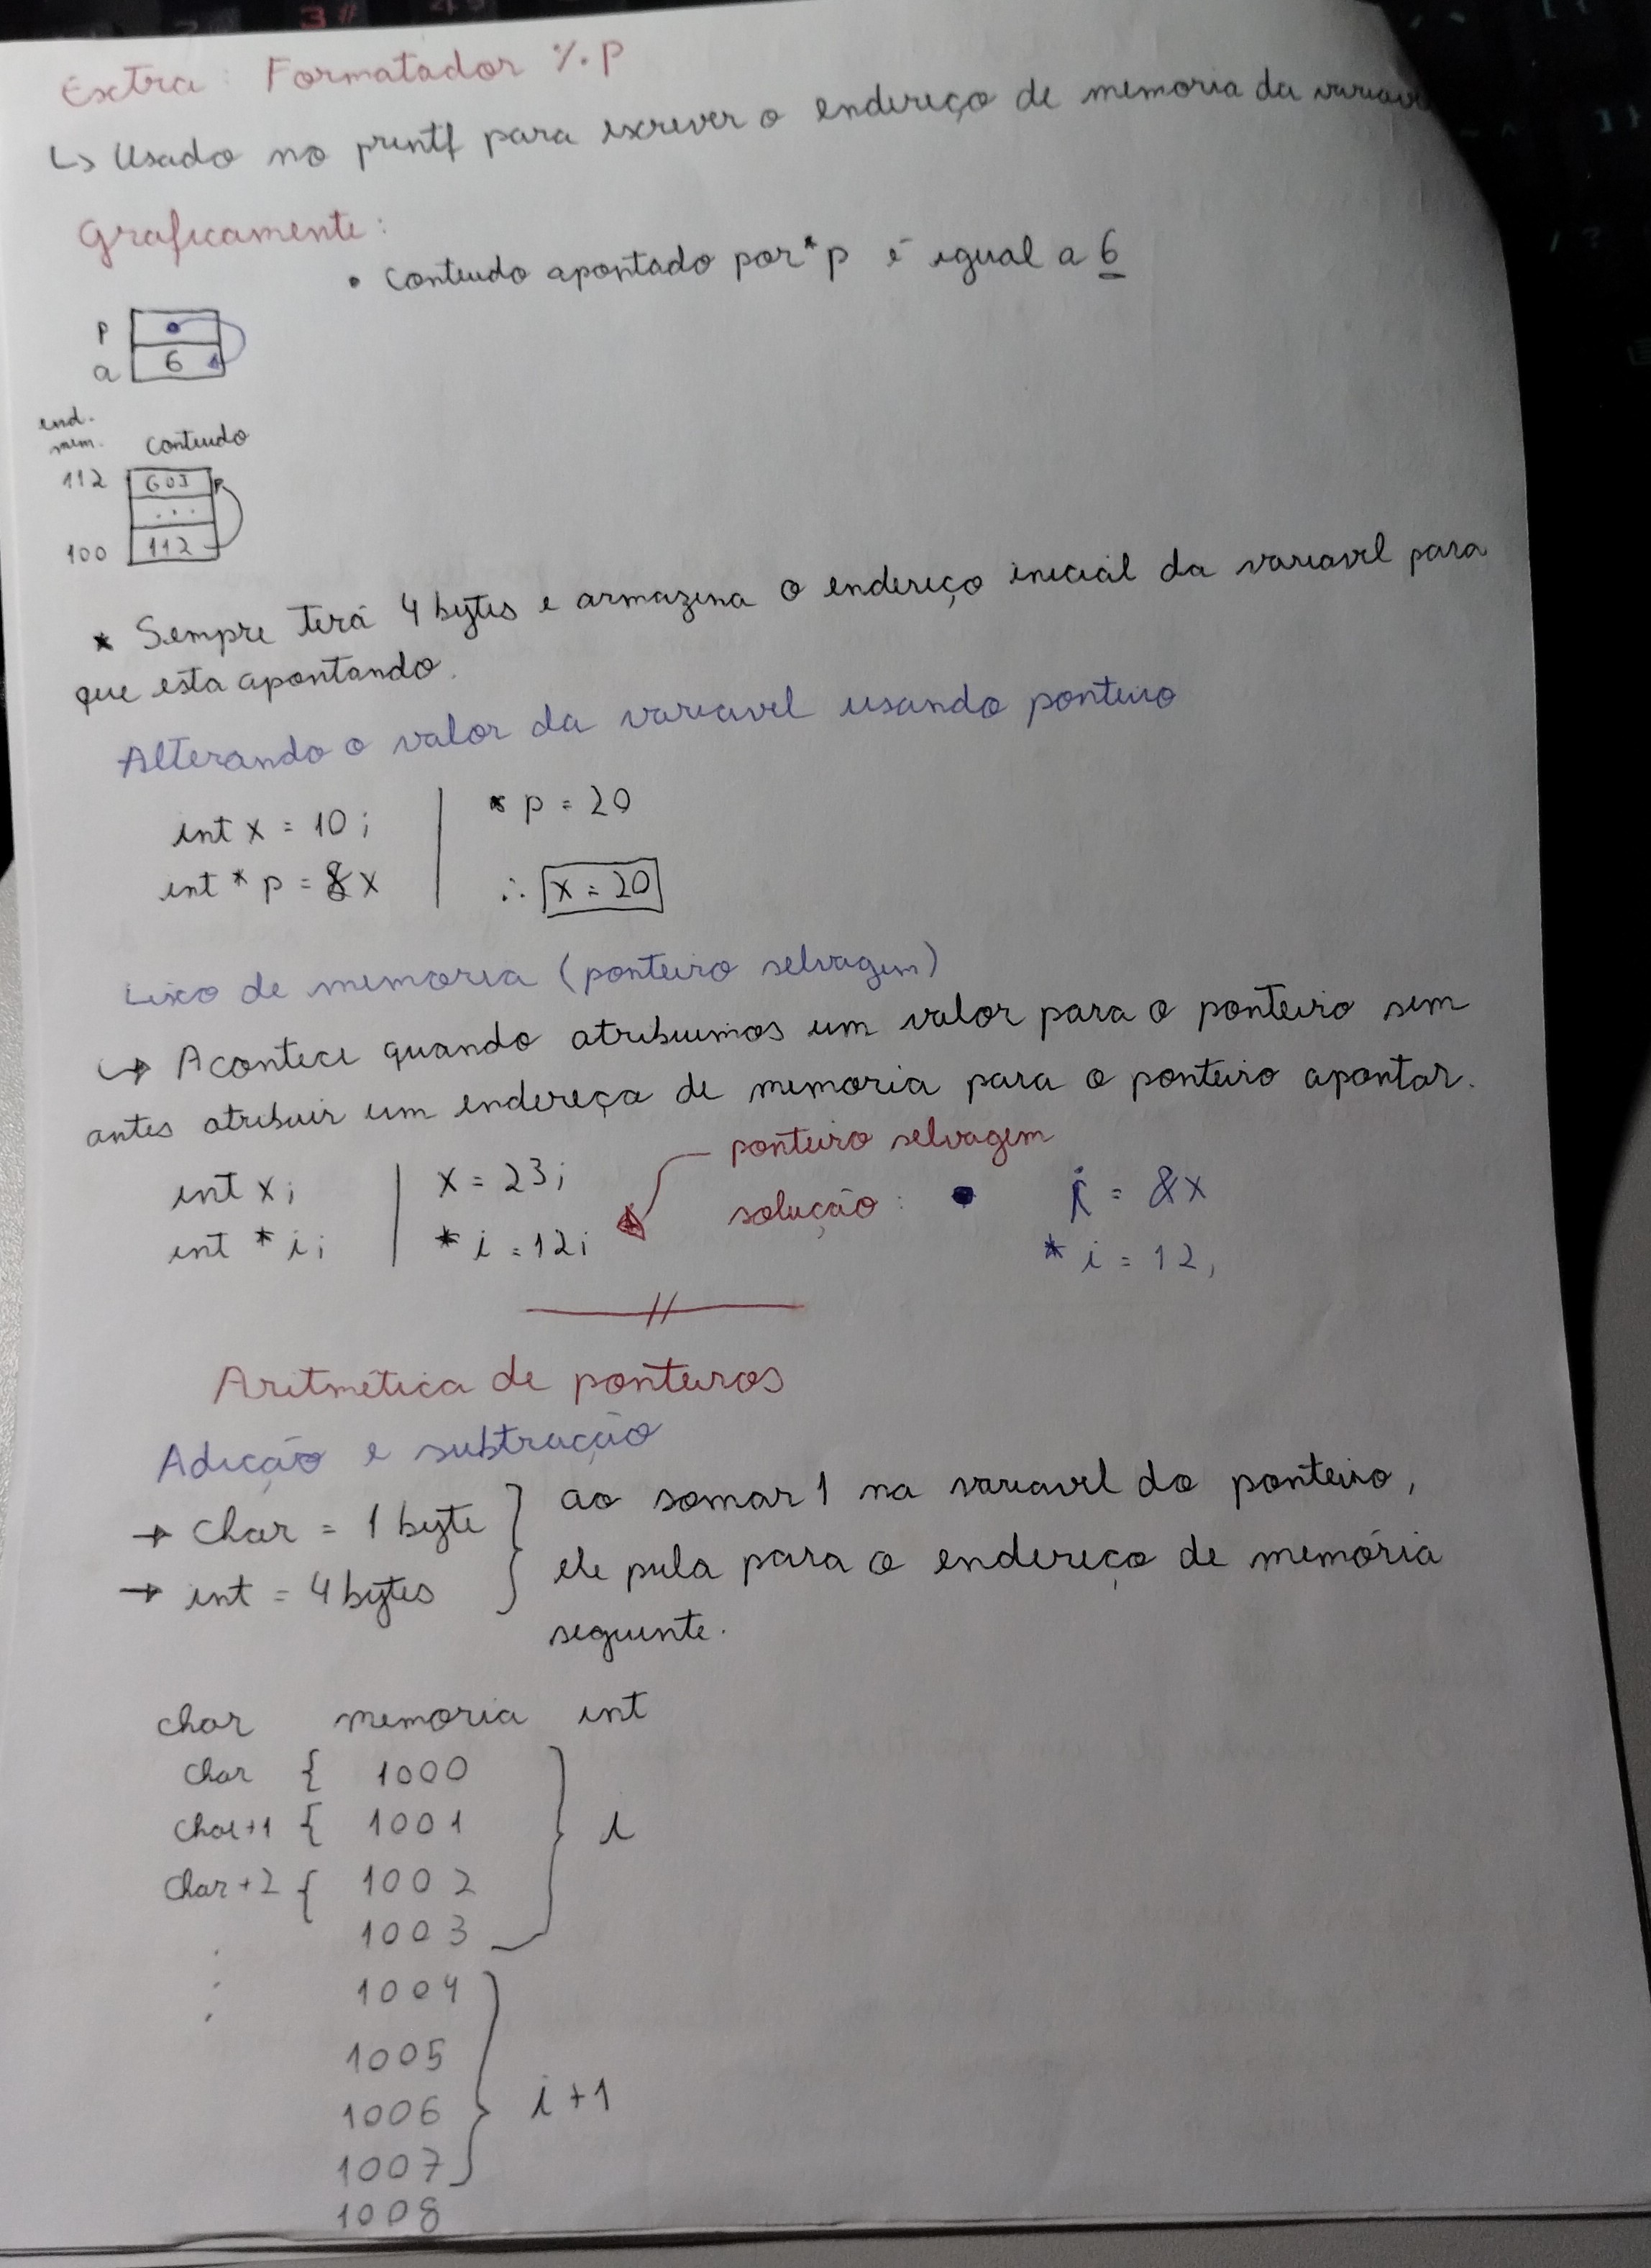 Extra: Formatador %p
↳ Usado no printf para escrever o endereço de memoria da
Graficamente:
• conteudo apontado por *p é igual a 6
p
a 6
end.
mem. conteudo
112
...
100 112
* Sempre terá 4 bytes e armazena o endereço inicial da variavel para
que esta apontando.
Alterando o valor da variavel usando ponteiro
int x = 10; | *p = 20
int *p = &x | ∴ x = 20
Lixo de memoria (ponteiro selvagem)
↳ Acontece quando atribuimos um valor para o ponteiro sem
antes atribuir um endereça de memoria para o ponteiro apontar.
ponteiro selvagem
int x; | x = 23; solução: • i = &x
int *i; | *i = 12; *i = 12,
//
Aritmética de ponteiros
Adição e subtração
→ Char = 1 byte } ao somar 1 na variavel do ponteiro,
→ int = 4 bytes } ele pula para o endereço de memória
seguinte.
char memoria int
char { 1000
char+1 { 1001 } i
char+2 { 1002
1003
1004
1005
1006 } i+1
1007
1008